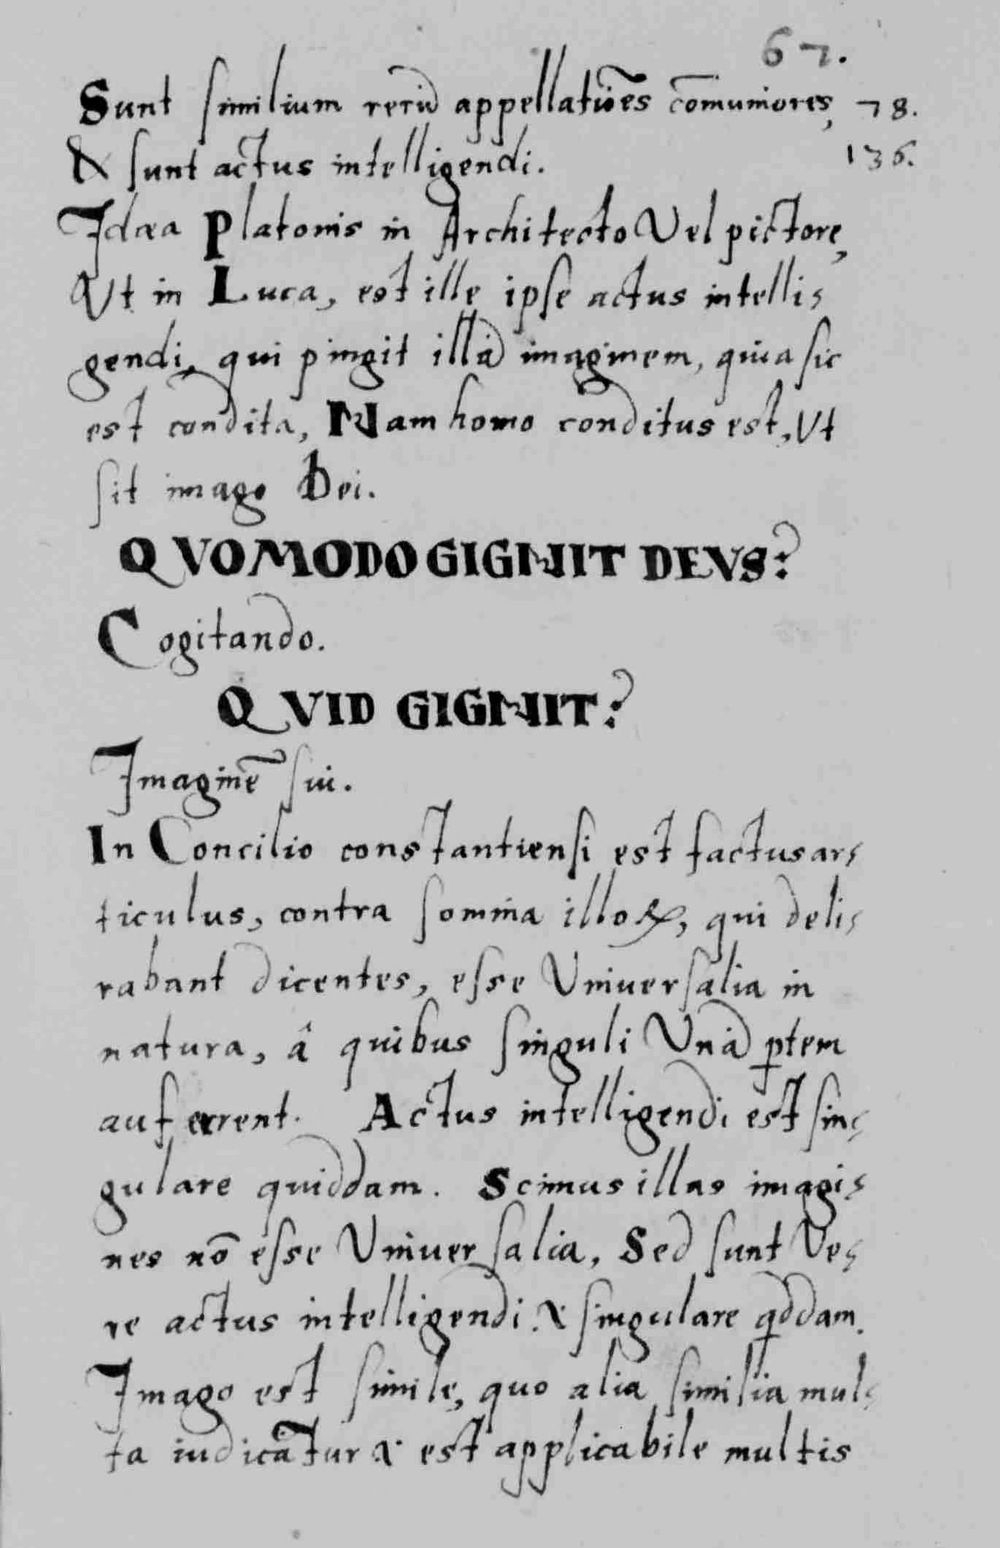 67.
Sunt similium rerū appellatiōes cōmuniores, 78.
& sunt actus intelligendi. 136.
Idæa Platonis in Architecto Vel pictore,
Vt in Luca, est ille ipse actus intelli-
gendi, qui pingit illā imaginem, quia sic
est condita, Nam homo conditus est, Vt
sit imago Dei.
QVOMODO GIGNIT DEVS?
Cogitando.
QVID GIGNIT?
Imaginē sui.
In Concilio constantiensi est factus ar-
ticulus, contra somnia illoꝝ, qui deli-
rabant dicentes, esse Vniuersalia in
natura, â quibus singuli Vnā ꝑtem
auferrent. Actus intelligendi est sin-
gulare quiddam. Scimus illas imagi-
nes nō esse Vniuersalia, Sed sunt Ve-
re actus intelligendi & singulare qddam.
Imago est simile, quo alia similia mul-
ta iudicātur & est applicabile multis